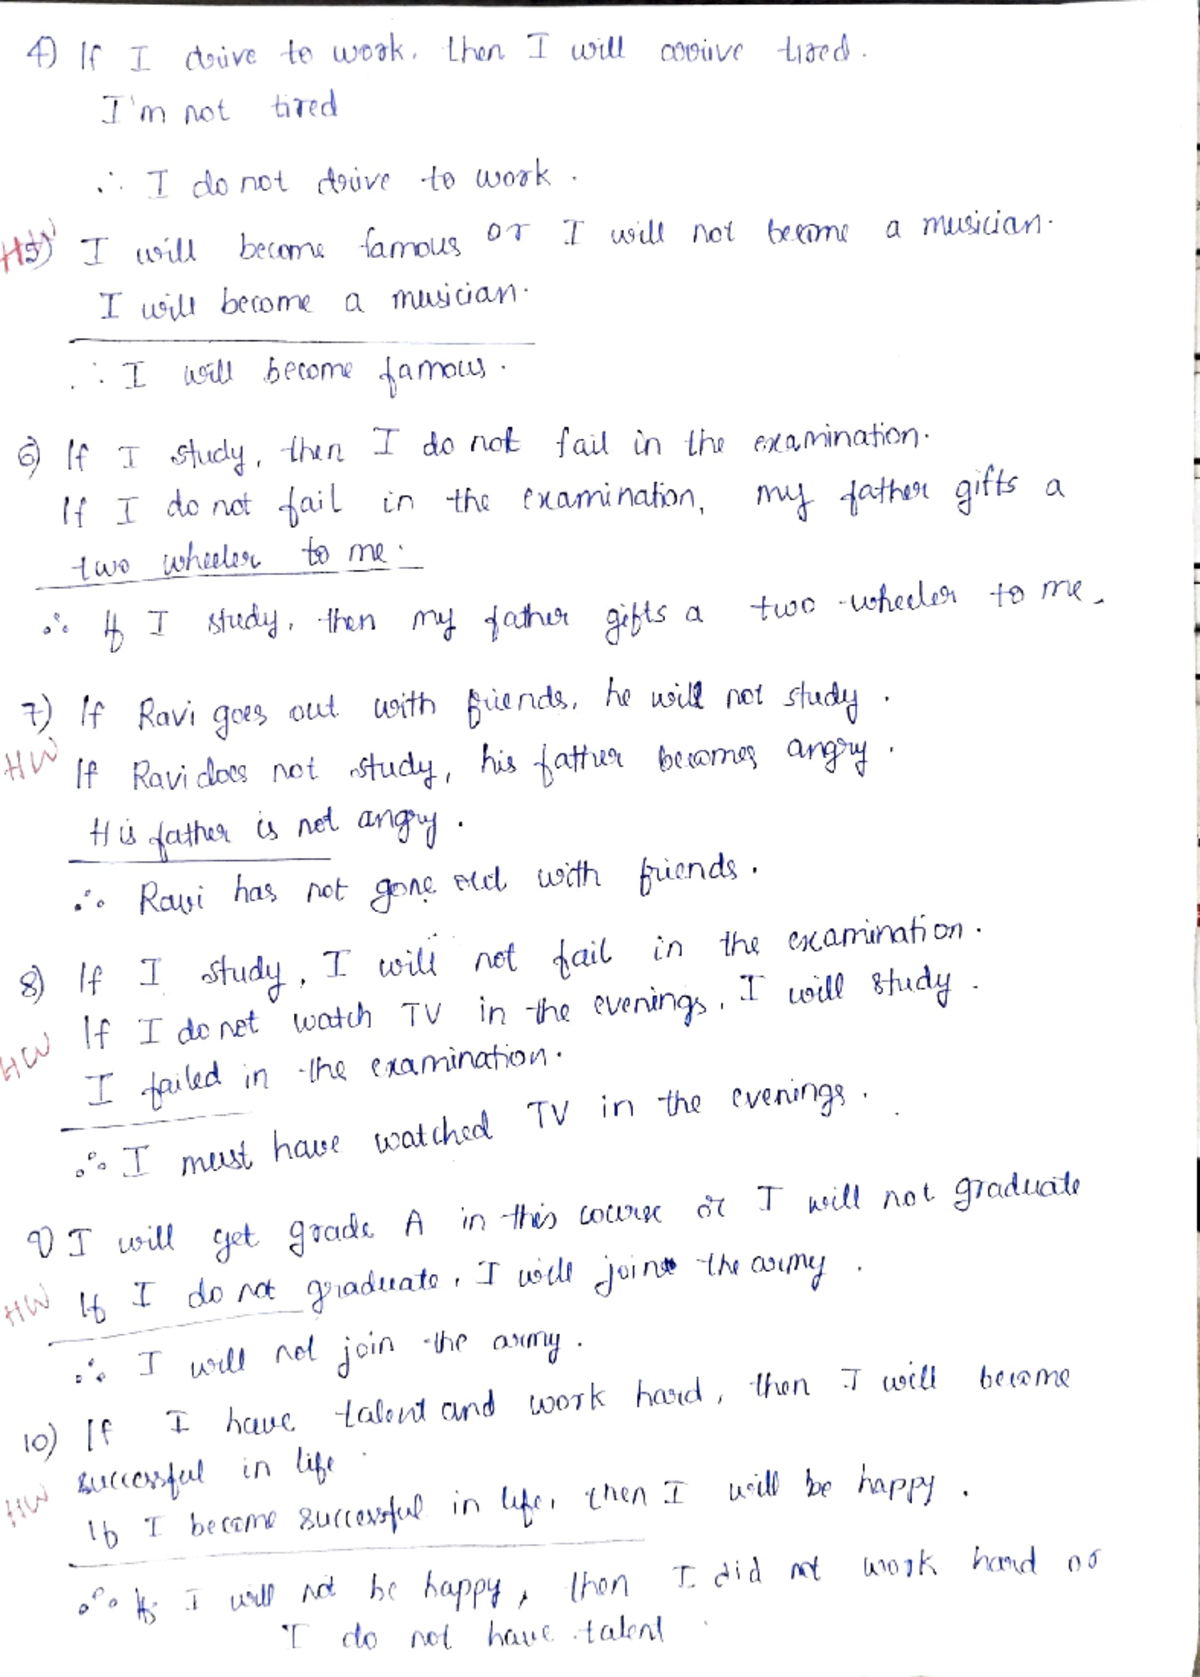 4) If I drive to work, then I will arrive tired.
I'm not tired
∴ I do not drive to work.
HW 5) I will become famous or I will not become a musician.
I will become a musician.
∴ I will become famous.
6) If I study, then I do not fail in the examination.
If I do not fail in the examination, my father gifts a
two wheeler to me.
∴ If I study, then my father gifts a two-wheeler to me.
7) If Ravi goes out with friends, he will not study.
HW If Ravi does not study, his father becomes angry.
His father is not angry.
∴ Ravi has not gone out with friends.
8) If I study, I will not fail in the examination.
HW If I do not watch TV in the evenings, I will study.
I failed in the examination.
∴ I must have watched TV in the evenings.
9) I will get grade A in this course or I will not graduate
HW If I do not graduate, I will join the army.
∴ I will not join the army.
10) If I have talent and work hard, then I will become
HW successful in life.
If I become successful in life, then I will be happy.
∴ If I will not be happy, then I did not work hard or
I do not have talent.